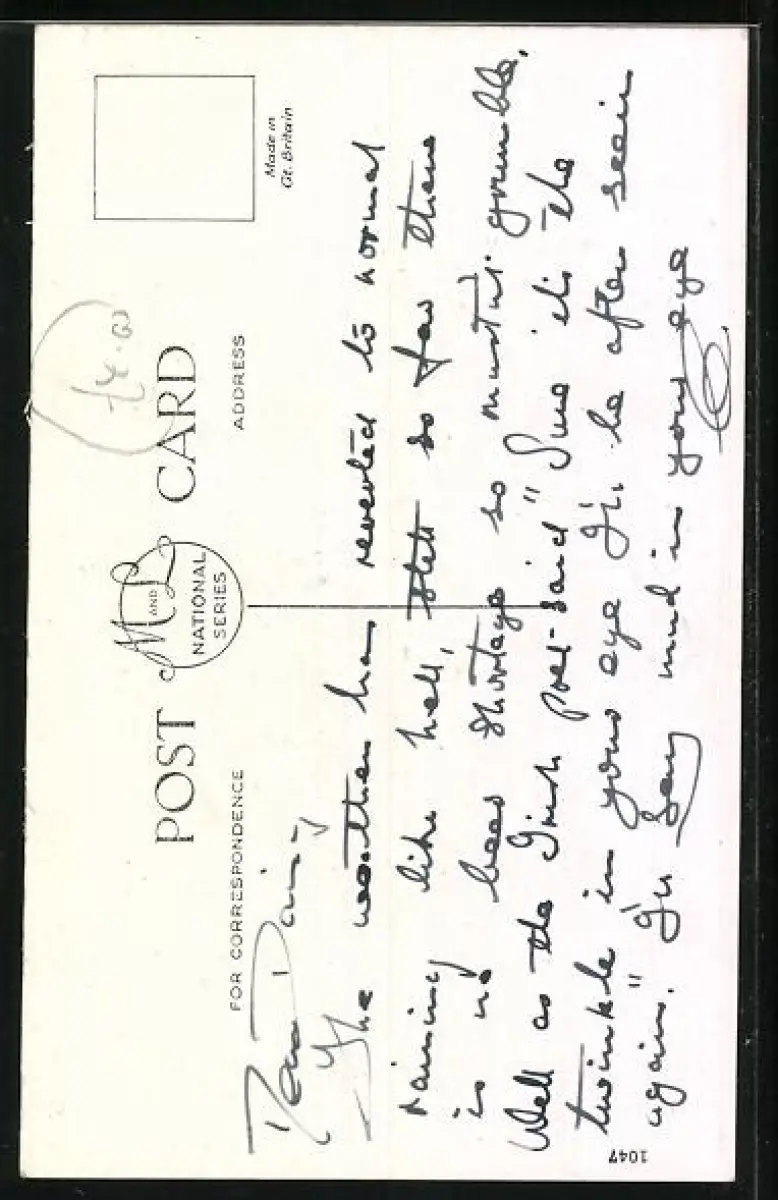 POST CARD
M AND L
NATIONAL
SERIES
Made in
Gt. Britain
FOR CORRESPONDENCE
ADDRESS
Dear
The weather has reverted to normal
raining like hell, still so far there
is no beer shortage so mustnt grumble.
Well as the Irish poet said "Sure its the
twinkle in your eye I'll be after seein
again." I'll say mud in your eye
1047